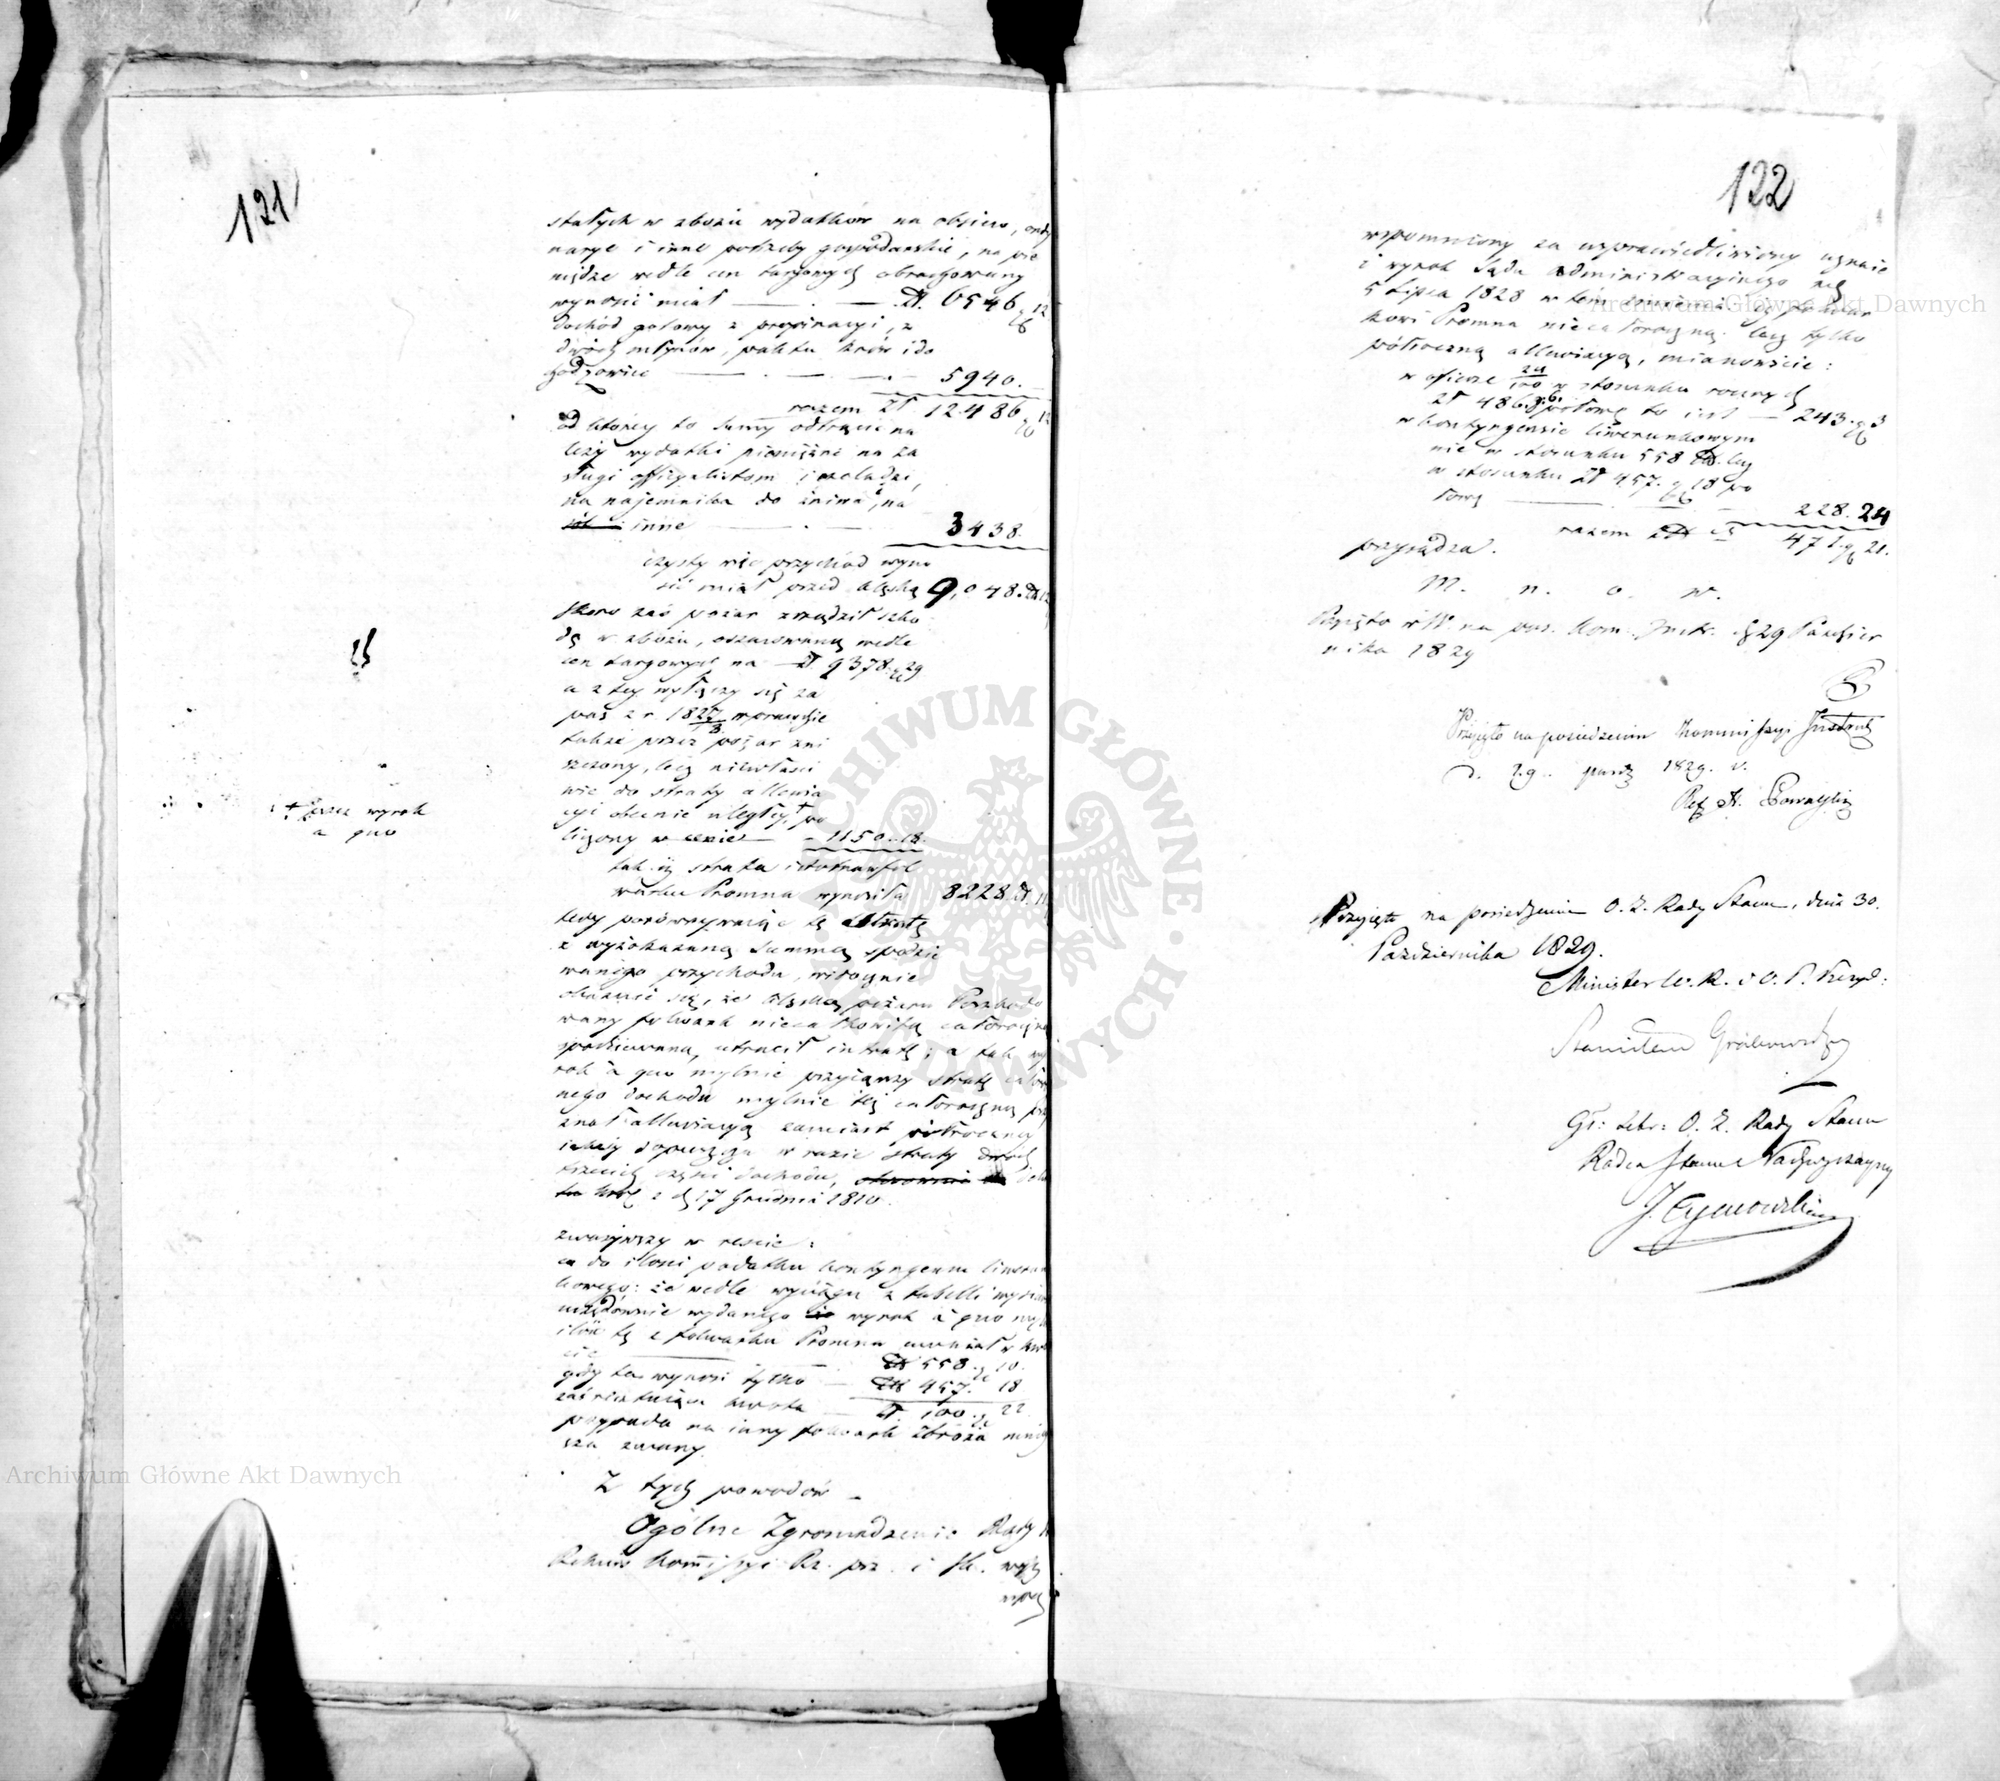 121
stałych w zbożu wydatków na obsiew, ordy
narye i inne potrzeby gospodarskie, na pie
niądze wedle cen targowych obrachowany
wynosić miał — Zł. 6546 g 12
dochód gotowy z propinacyi, z
dwóch młynów, paktu krów i do
godzowice — 5940.
razem Zł 12486 g 12
od któréy to summy odtrącić na
leży wydatki pieniężne na za
sługi officyalistom i czeladzi,
na najemnika do żniwa, na
inne — 3438.
czysty więc przychód wyno
sić miał przed klęską 9,048. Zł 12
skoro zaś pożar zrządził szko
dę w zbożu, oszacowaną wedle
cen targowych na — Zł. 9378. g 29
a z tey wyłączy się za
pas z r. 1827/8 wprawdzie
także przez pożar zni
szczony, lecz niewłaści
wie do straty allewia
cyi obecnie uległéy, + po
liczony w cenie — 1150. 18.
+ przez wyrok
a quo
tak iż strata istotna fol
warku Promna wynosiła 8228 Zł. 11
tedy porównywając tę stratę
z wyżokazaną summą spodzie
wanego przychodu, widocznie
okazuie się, że klęską pożaru Poszkodo
wany folwark nieca łkowitą całoroczn
spodziewaną, utracił intratę; a tak wy
rok a quo mylnie przyiąwszy stratę całoro
nego dochodu mylnie téż całoroczną prz
znał alluwiacyą zamiast półroczney
iakiéy dopuszcza w razie straty dwóch
trzecich części dochodu,
z d. 17 Grudnia 1810.
zważywszy w reście:
co do ilości podatku kontyngensu liwerun
kowego: że wedle wyciągu z tabelli wymia
urzędownie wydanego wyrok à quo my
ilość tę z folwarku Promna
cie — Zł 558. g 10.
gdy ta wynosi tylko — Zł 457. 18
zaś reszta kwota — Zł. 100. g 22
przypada na inny folwark Zbroża mniey
sza zwany.
Z tych powodów
Ogólne Zgromadzenie Rady
Rekurs Kommissyi Rz. prz. i Sk. wyżey
wspo
122
wspomniony za usprawiedliwiony uznaie
i wyrok Sądu Administracyinego z d.
5 Lipca 1828 w tém zmienia iż folwar
kowi Promna nie całoroczną lecz tylko
półroczną alluwiacyą, mianowicie:
w ofierze 24/100 w stosunku rocznych
Zł 486. g. 6. połowę to iest — 243. g 3
w kontyngensie liwerunkowym
nie w stosunku 558 Zł. lecz
w stosunku Zł 457. g 18 po
łowę — 228. 24
razem Zł — 471. g 2[7].
przysądza.
M. n. o. w.
Przyięto na pos. Kom. Instr. d. 29 Paździer
nika 1829
Przyięto na posiedzeniu Kommissyi Instrukc
d. 29. paźdz 1829. r.
Przyięto na posiedzeniu O. Z. Rady Stanu, dnia 30.
Października 1829.
Minister W. R. i O. P. Prezyd:
Stanisław Grabowski
O. Z. Rady Stanu
Radca Stanu Nadzwyczayny
Archiwum Główne Akt Dawnych
Archiwum Główne Akt Dawnych
ARCHIWUM GŁÓWNE AKT DAWNYCH